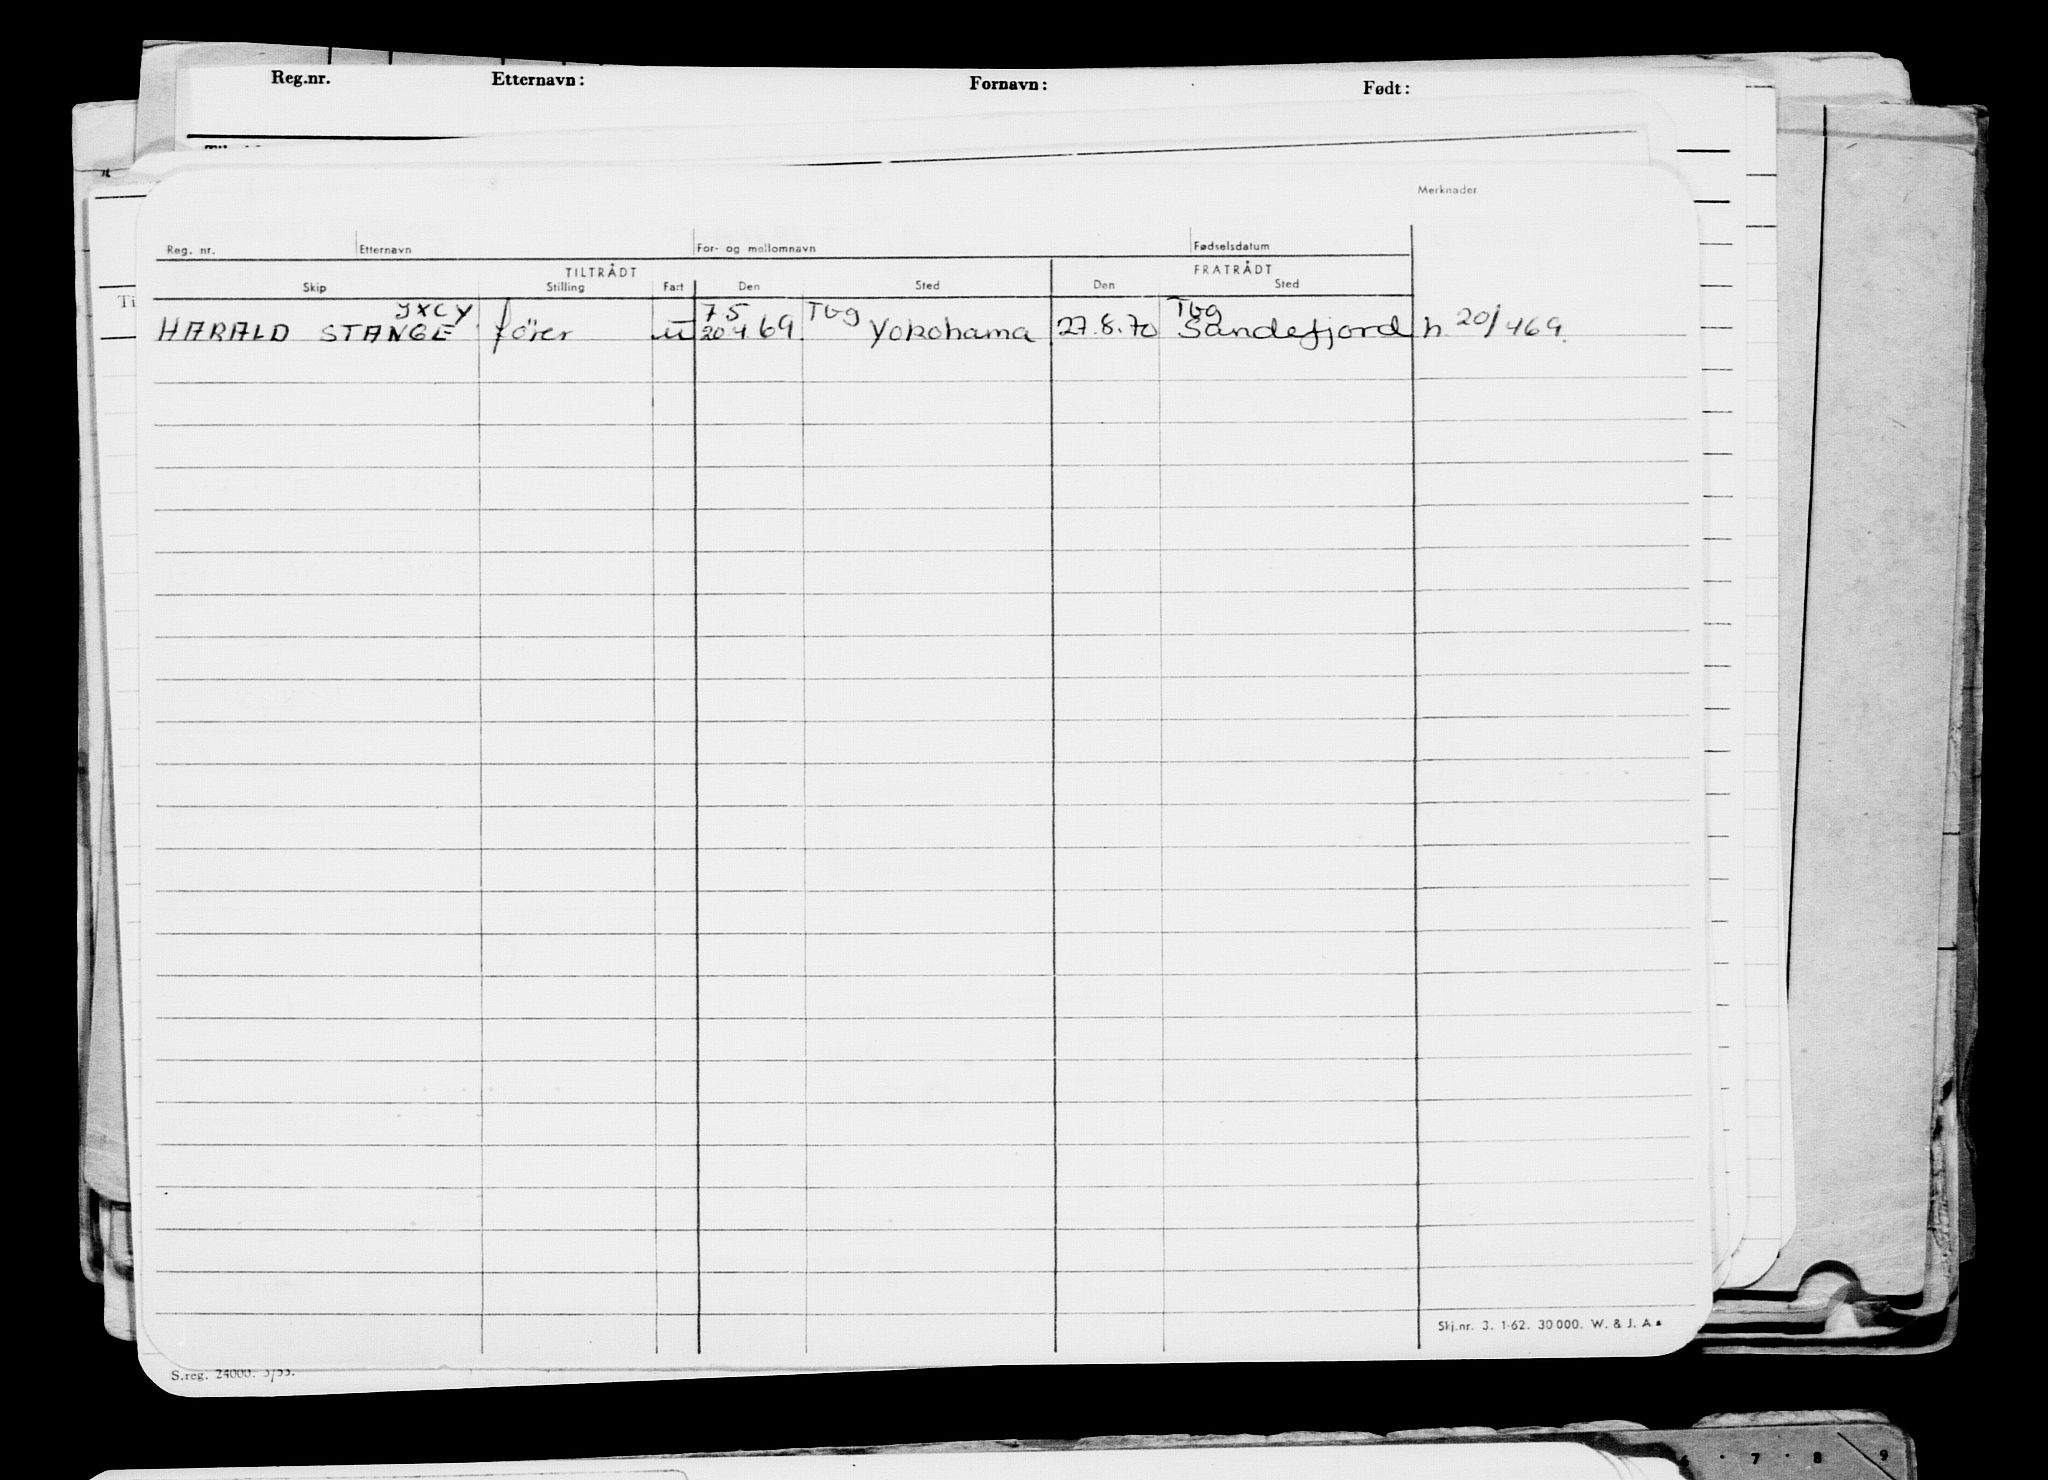 Reg.nr. Etternavn: Fornavn: Født:
Merknader
Reg. nr. Etternavn For- og mellomnavn Fødselsdatum
TILTRÅDT FRATRÅDT
Skip Stilling Fart Den Sted Den Sted
JXCY 7 5 Tbg Tbg
HARALD STANGE fører u 20.4.69. Yokohama 27.8.70 Sandefjord h 20/469.
Skj.nr. 3. 1-62. 30 000. W. & J. A
S.reg. 24000. 3/53.
7 · 8 9